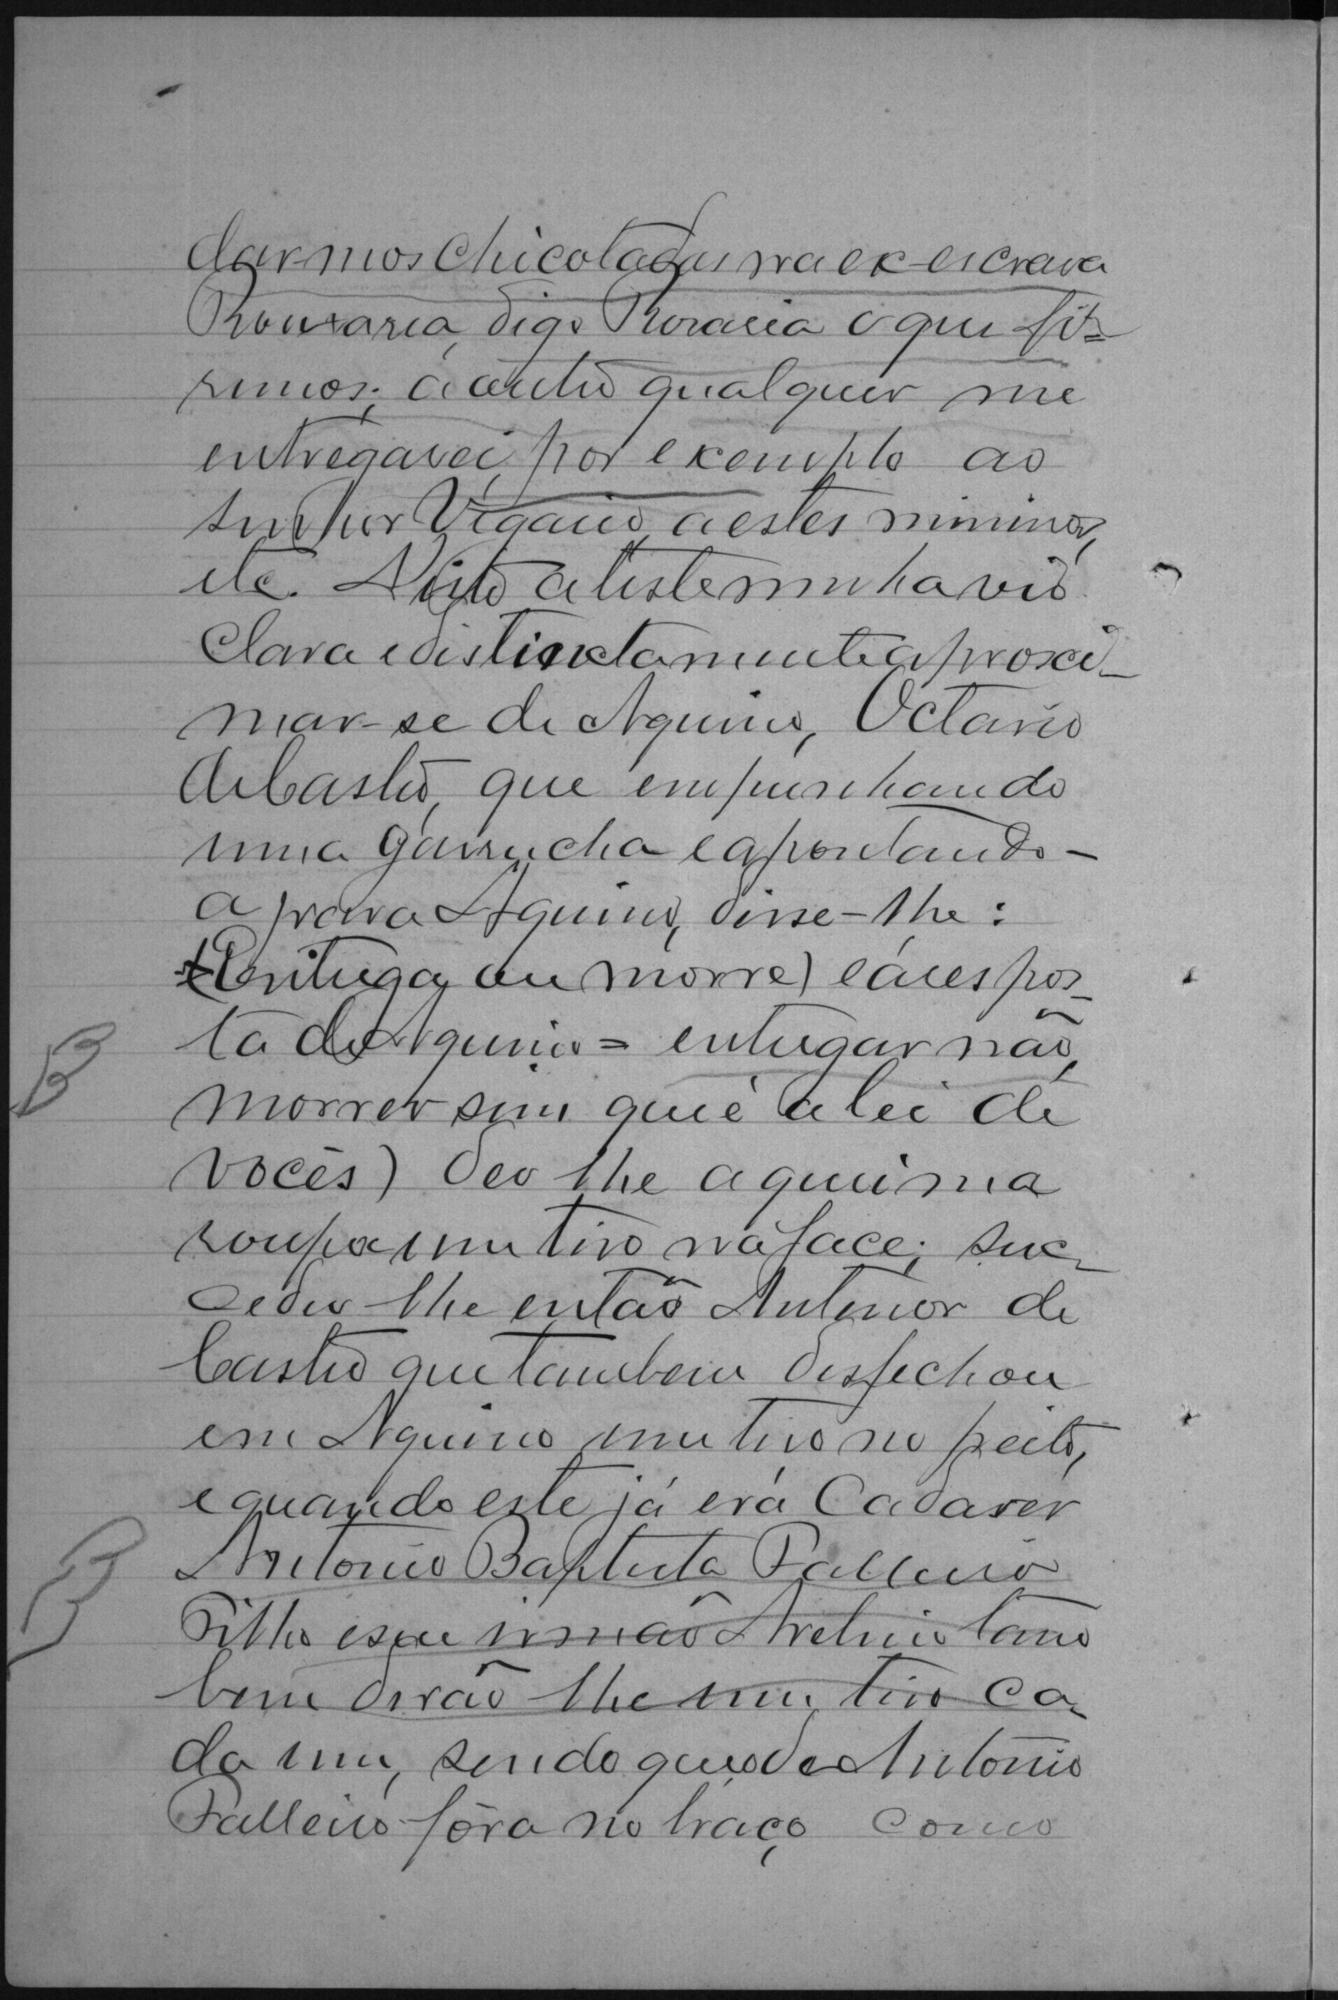 darmos chicotadas na ex-escrava
Rouzaria, digo Rosaria o que fi-
zemos; a outro qualquer me
entregarei, por exemplo ao
senhor Vigario, a estes meninos,
etc. Nisto a testemunha vio
clara e distinctamente aproxi-
mar-se de Aquino, Octavio
de Castro, que empunhando
uma garrucha e apontando-
a para Aquino, disse-lhe:
(Entrega ou morre) e á respos-
ta de Aquino = entregar não,
morrer sim que é a lei de
vocês) deo lhe a queima
roupa um tiro na face; suc-
cedeu-lhe então Antenor de
Castro que tambem desfechou
em Aquino um tiro no peito,
e quando este já era cadaver
Antonio Baptista Falleiro
Filho e seu irmão Avelino tam
bem derão lhe um tiro ca-
da um, sendo que o de Antonio
Falleiro fôra no braço como